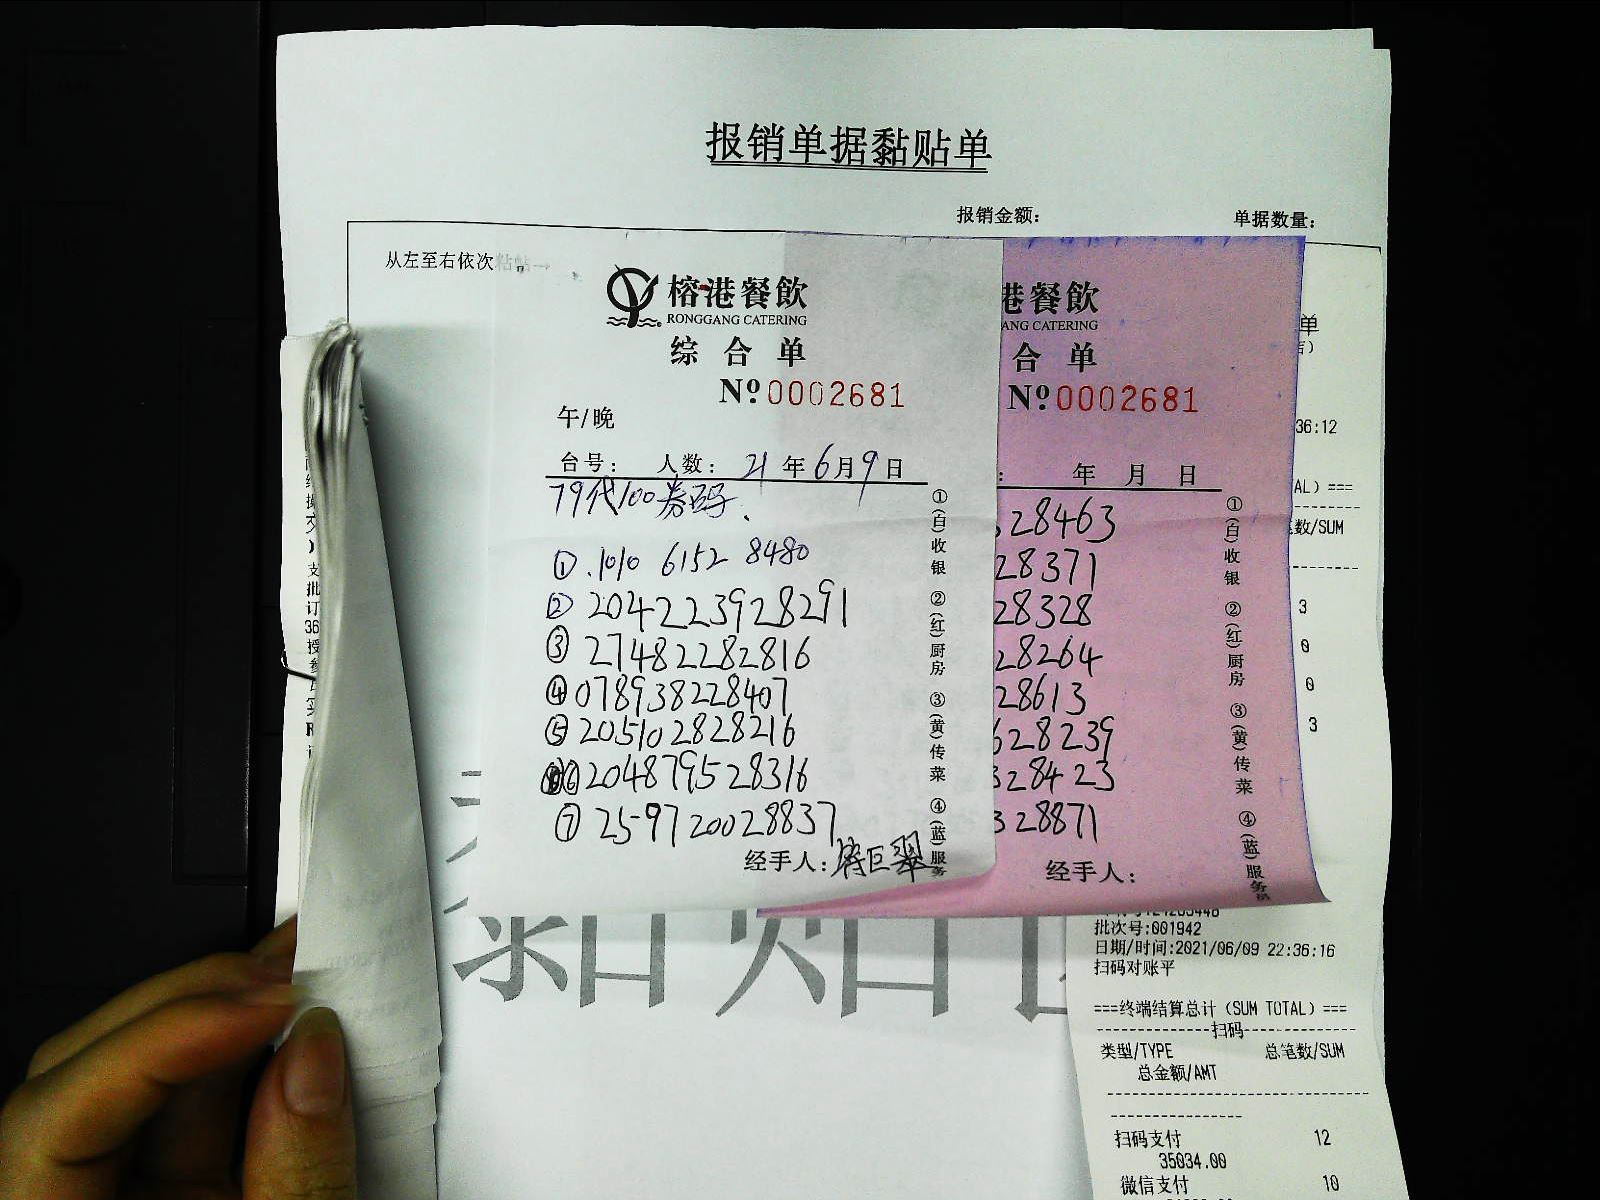 报销单据黏贴单
报销金额：
单据数量：
从左至右依次粘帖→
榕港餐飲
RONGGANG CATERING
综合单
Nº0002681
午/晚
台号： 人数： 21年6月9日
79代100券码、
① .1010 6152 8480
② 204223928291
③ 27482282816
④ 078938228407
⑤ 205102828216
⑥ 204879528316
⑦ 25-9720028837
经手人：
①(白)收银 ②(红)厨房 ③(黄)传菜 ④(蓝)服务
港餐飲
ANG CATERING
合单
Nº0002681
年 月 日
28463
28371
28328
28264
28613
628239
328423
328871
经手人：
①(白)收银 ②(红)厨房 ③(黄)传菜 ④(蓝)服务员
单
36:12
AL) ===
数/SUM
3
0
0
3
批次号:001942
日期/时间:2021/06/09 22:36:16
扫码对账平
===终端结算总计 (SUM TOTAL) ===
扫码
类型/TYPE 总笔数/SUM
总金额/AMT
扫码支付 12
35034.00
微信支付 10
支
批
订
36
授
黏贴